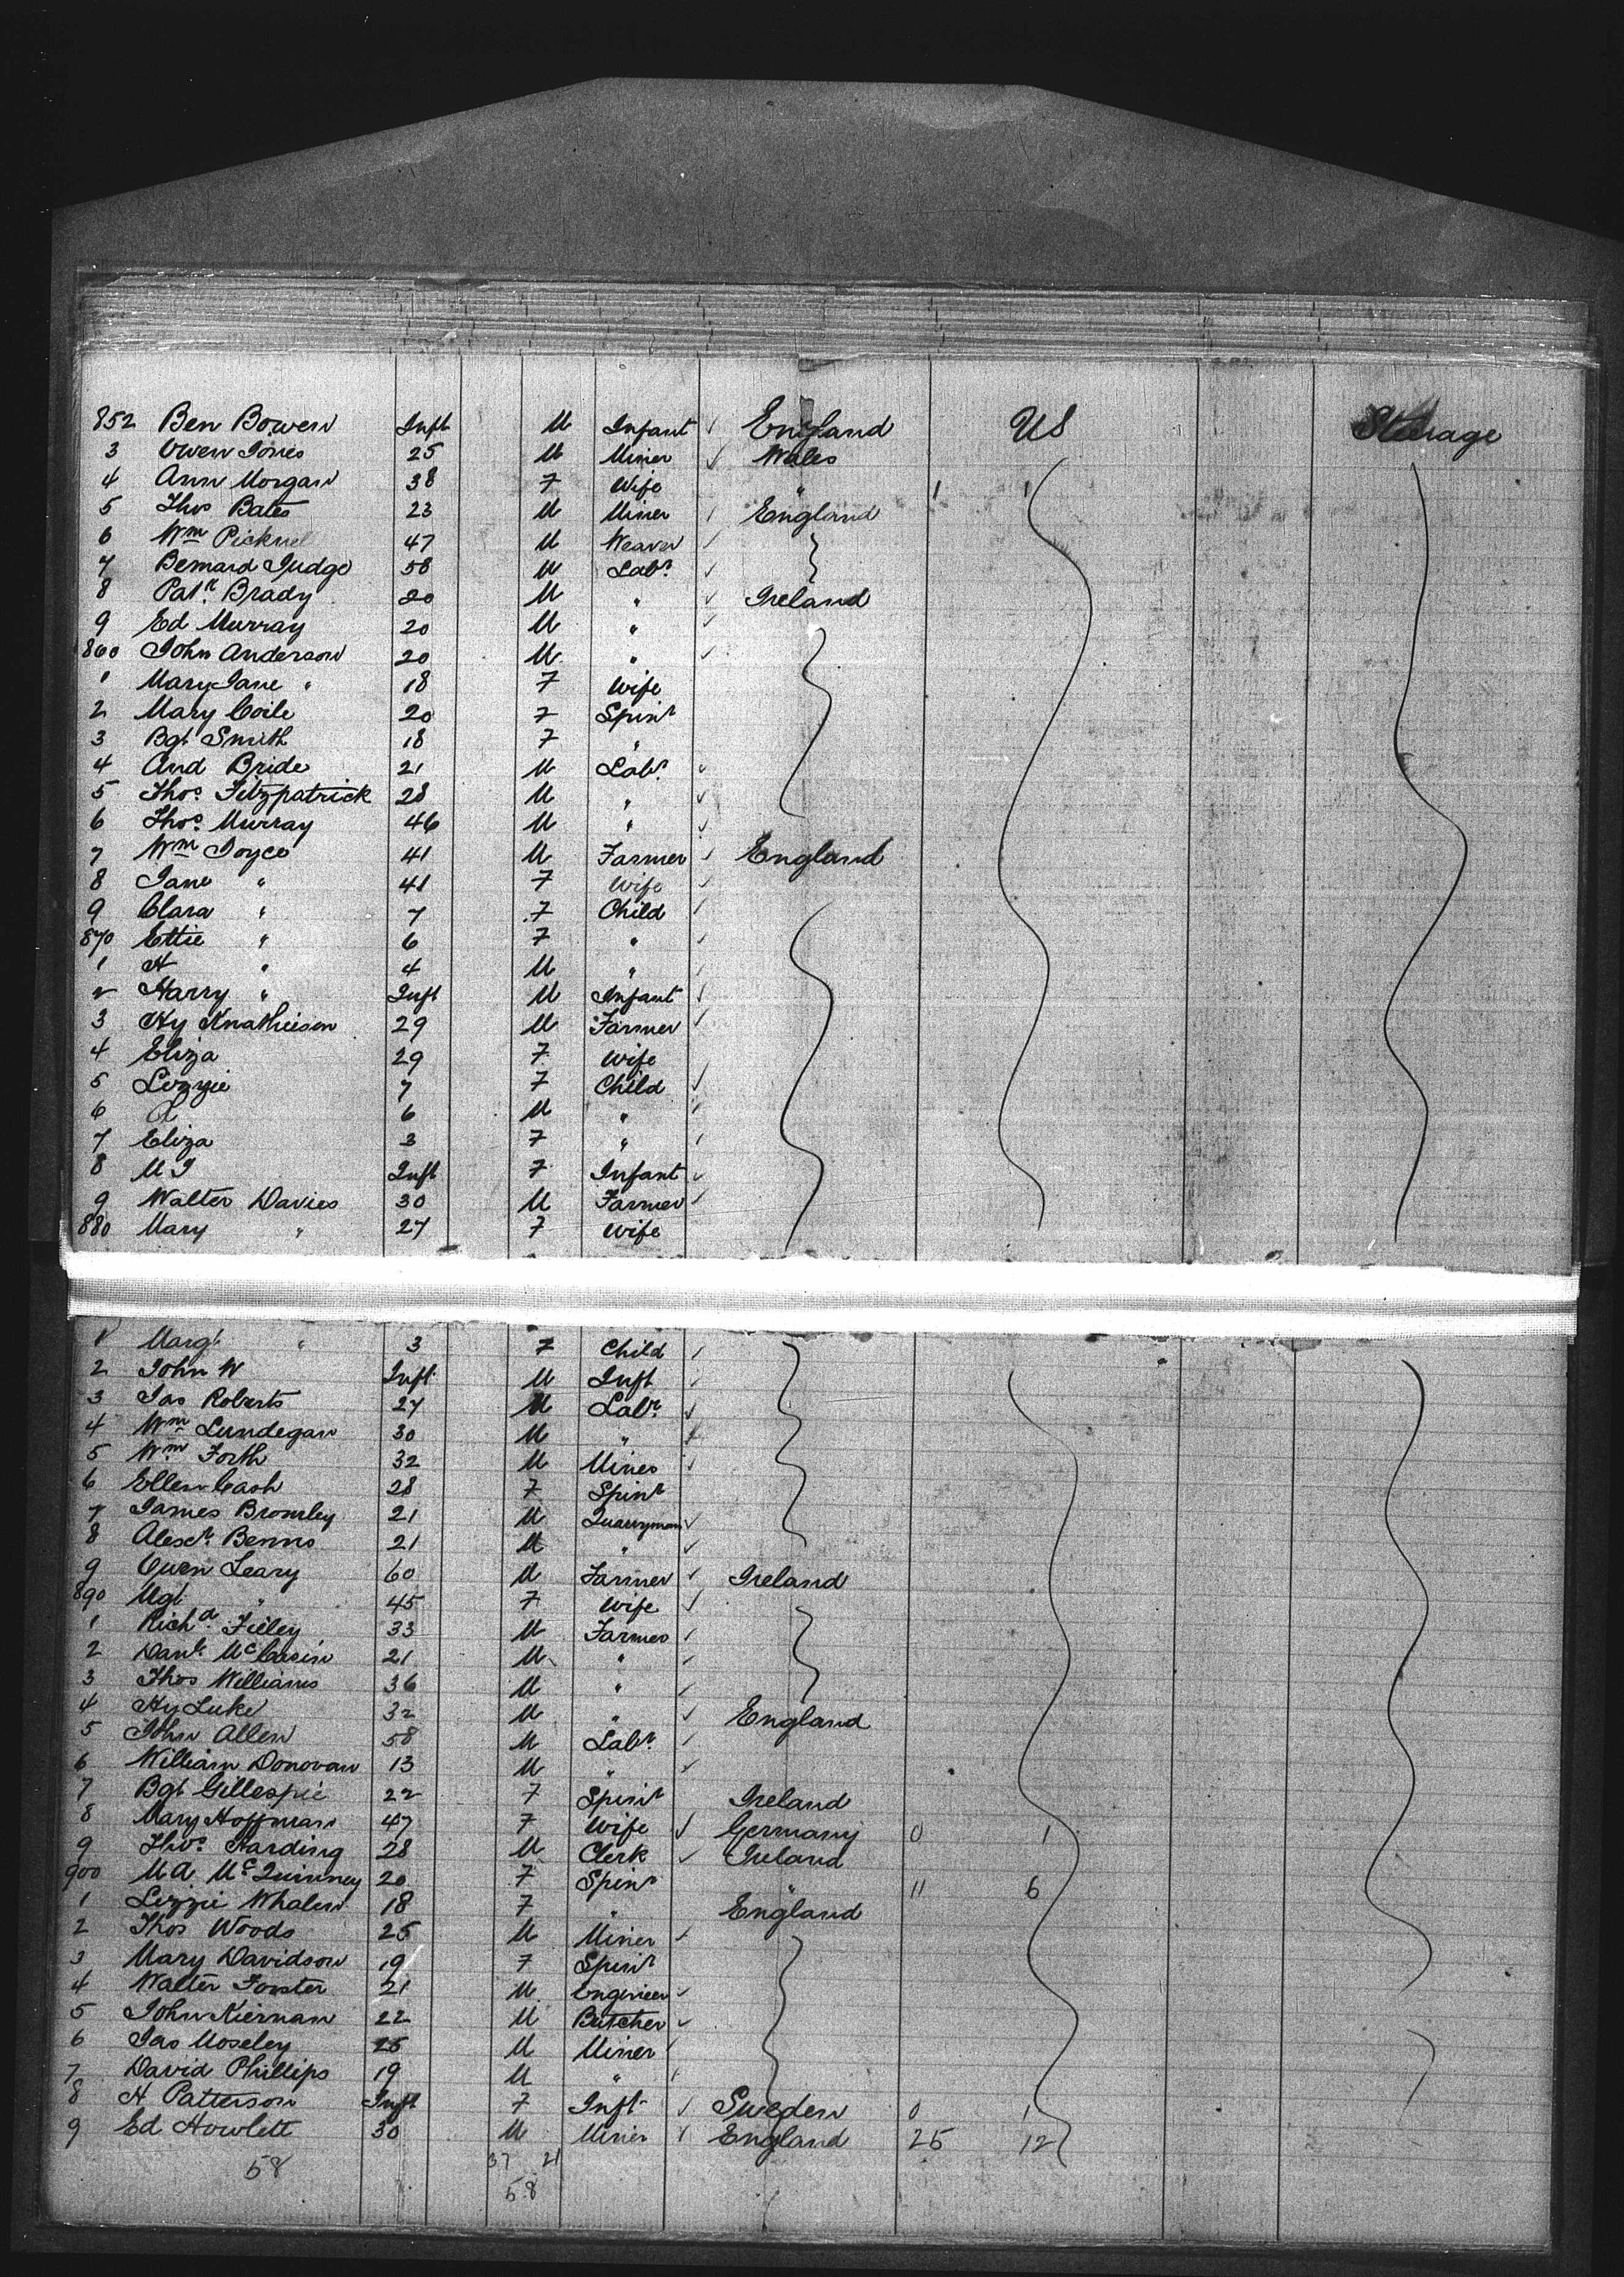 852 Ben Bowen Inft M Infant ✓ England US Steerage
3 Owen Jones 25 M Miner ✓ Wales
4 Ann Morgan 38 F Wife " 1 1
5 Thos Bates 23 M Miner England
6 Wm 47 M Weaver
7 Bernard Judge 58 M Labr ✓
8 Patk Brady 20 M " ✓ Ireland
9 Ed Murray 20 M " ✓
860 John Anderson 20 M " ✓
1 Mary Jane " 18 F Wife
2 Mary Coile 20 F Spinr
3 Bgt Smith 18 F "
4 And Bride 21 M Labr ✓
5 Thos. Fitzpatrick 28 M " ✓
6 Thos. Murray 46 M " ✓
7 Wm Joyce 41 M Farmer ✓ England
8 Jane " 41 F Wife ✓
9 Clara " 7 F Child
870 Ettie " 6 F "
1 H " 4 M "
2 Harry " Inft M Infant
3 Hy 29 M Farmer
4 Eliza 29 F Wife
5 Lizzie 7 F Child ✓
6 A 6 M "
7 Eliza 3 F "
8 M J Inft F Infant ✓
9 Walter Davies 30 M Farmer
880 Mary " 27 F Wife
1 Margt " 3 F Child
2 John W Inft M Inft
3 Jas Roberts 27 M Labr ✓
4 Wm Lundegan 30 M "
5 Wm Forth 32 M Miner
6 Ellen Cash 28 F Spinr
7 James Bromley 21 M Quarryman ✓
8 Alexr. Benns 21 M " ✓
9 Owen Leary 60 M Farmer ✓ Ireland
890 Mgt " 45 F Wife ✓
1 Richd. 33 M Farmer
2 Danl. 21 M "
3 Thos Williams 36 M "
4 Hy Luke 32 M " ✓ England
5 John Allen 58 M Labr.
6 William Donovan 13 M " ✓
7 Bgt Gillespie 22 F Spinr Ireland
8 Mary Hoffman 47 F Wife ✓ Germany 0 1
9 Thos. Harding 28 M Clerk ✓ Ireland
900 M A McQuinney 20 F Spinr " 11 6
1 Lizzie Whalen 18 F " England
2 Thos Woods 25 M Miner ✓
3 Mary Davidson 19 F Spinr
4 Walter Forster 21 M Engineer ✓
5 John Kiernan 22 M Butcher ✓
6 Jas Moseley 25 M Miner
7 David Phillips 19 M "
8 H Patterson Inft F Inft ✓ Sweden 0 1
9 Ed Howlett 30 M Miner ✓ England 25 12
58 37 21
58